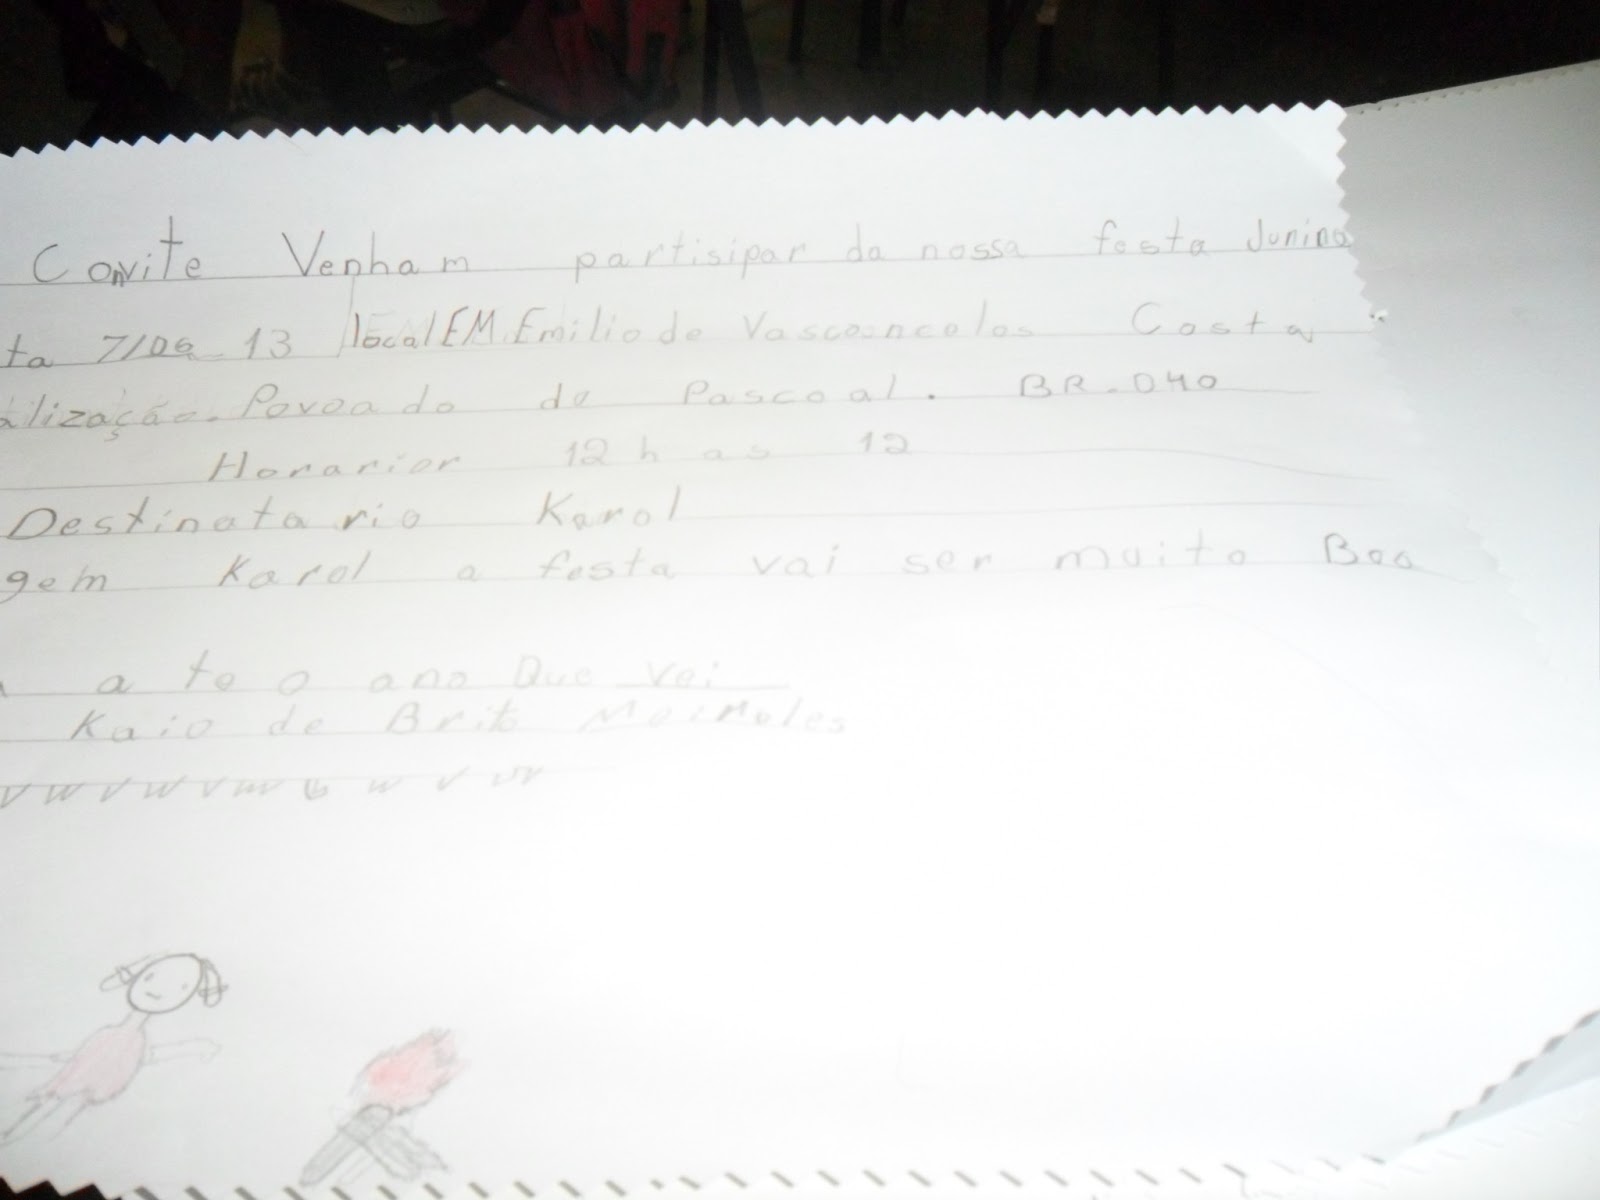 Convite Venham partisipar da nossa festa Junina
ta 7/06 13 local EM. Emilio de Vasconcelos Costa
alização. Povoado de Pascoal. BR-040
Horarior 12 h as 12
Destinatario Karol
gem Karol a festa vai ser muito Boa
a te o ano Que vei
Kaio de Brito